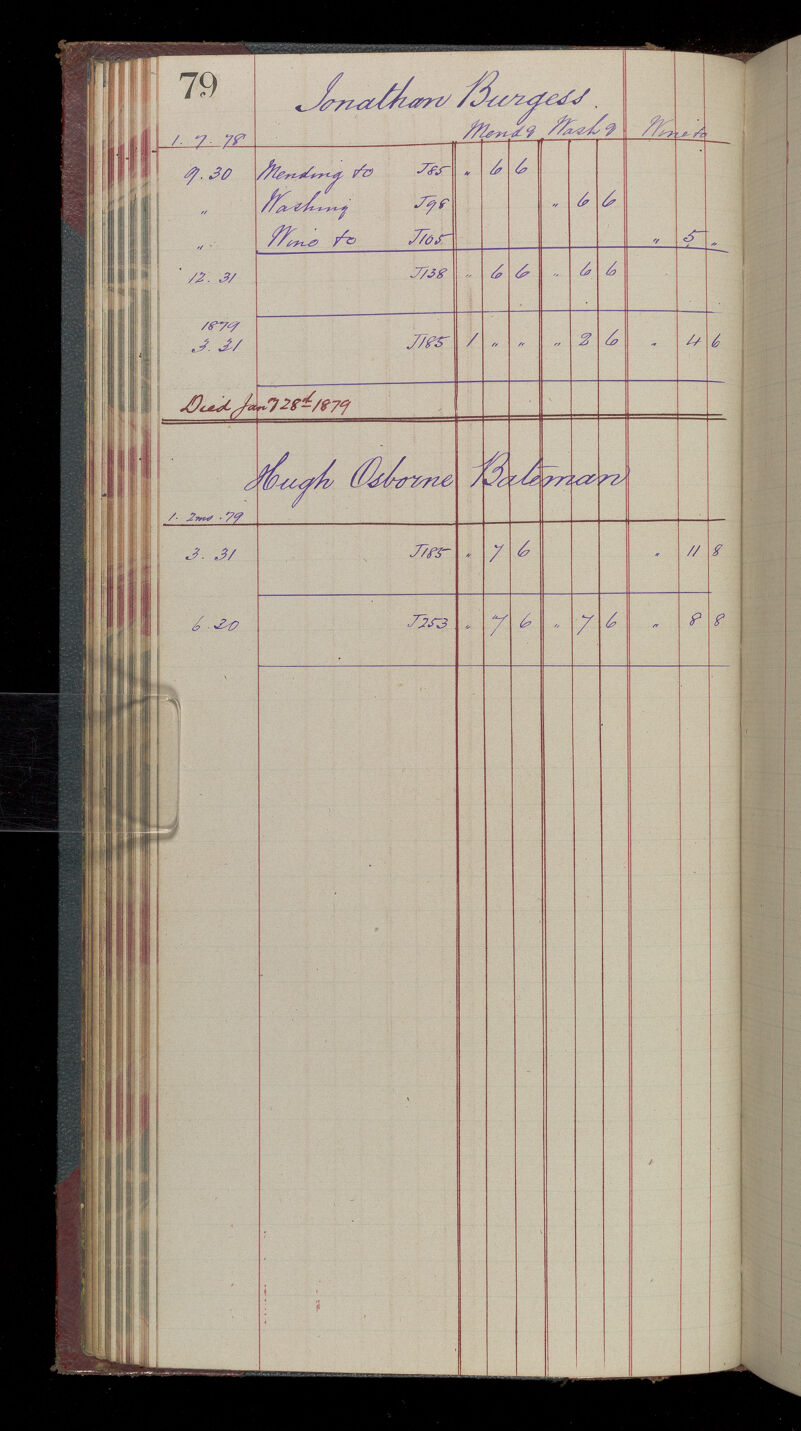 79
Jonathan Burgess.
1. 7. 78 Mendg Washg Wine &c
9. 30 Mending &c J85 " 6 6
" Washing J98 " 6 6
" Wine &c J105 " 5 "
12. 31 J138 " 6 6 " 6 6
1879
3. 31 J185 1 " " " 2 6 " 4 6
Died Jany 28th 1879
Hugh Osborne Bateman
1. 2mo. 79
3. 31 J185 " 7 6 " 11 8
6. 20 J253 " 7 6 " 7 6 " 8 8